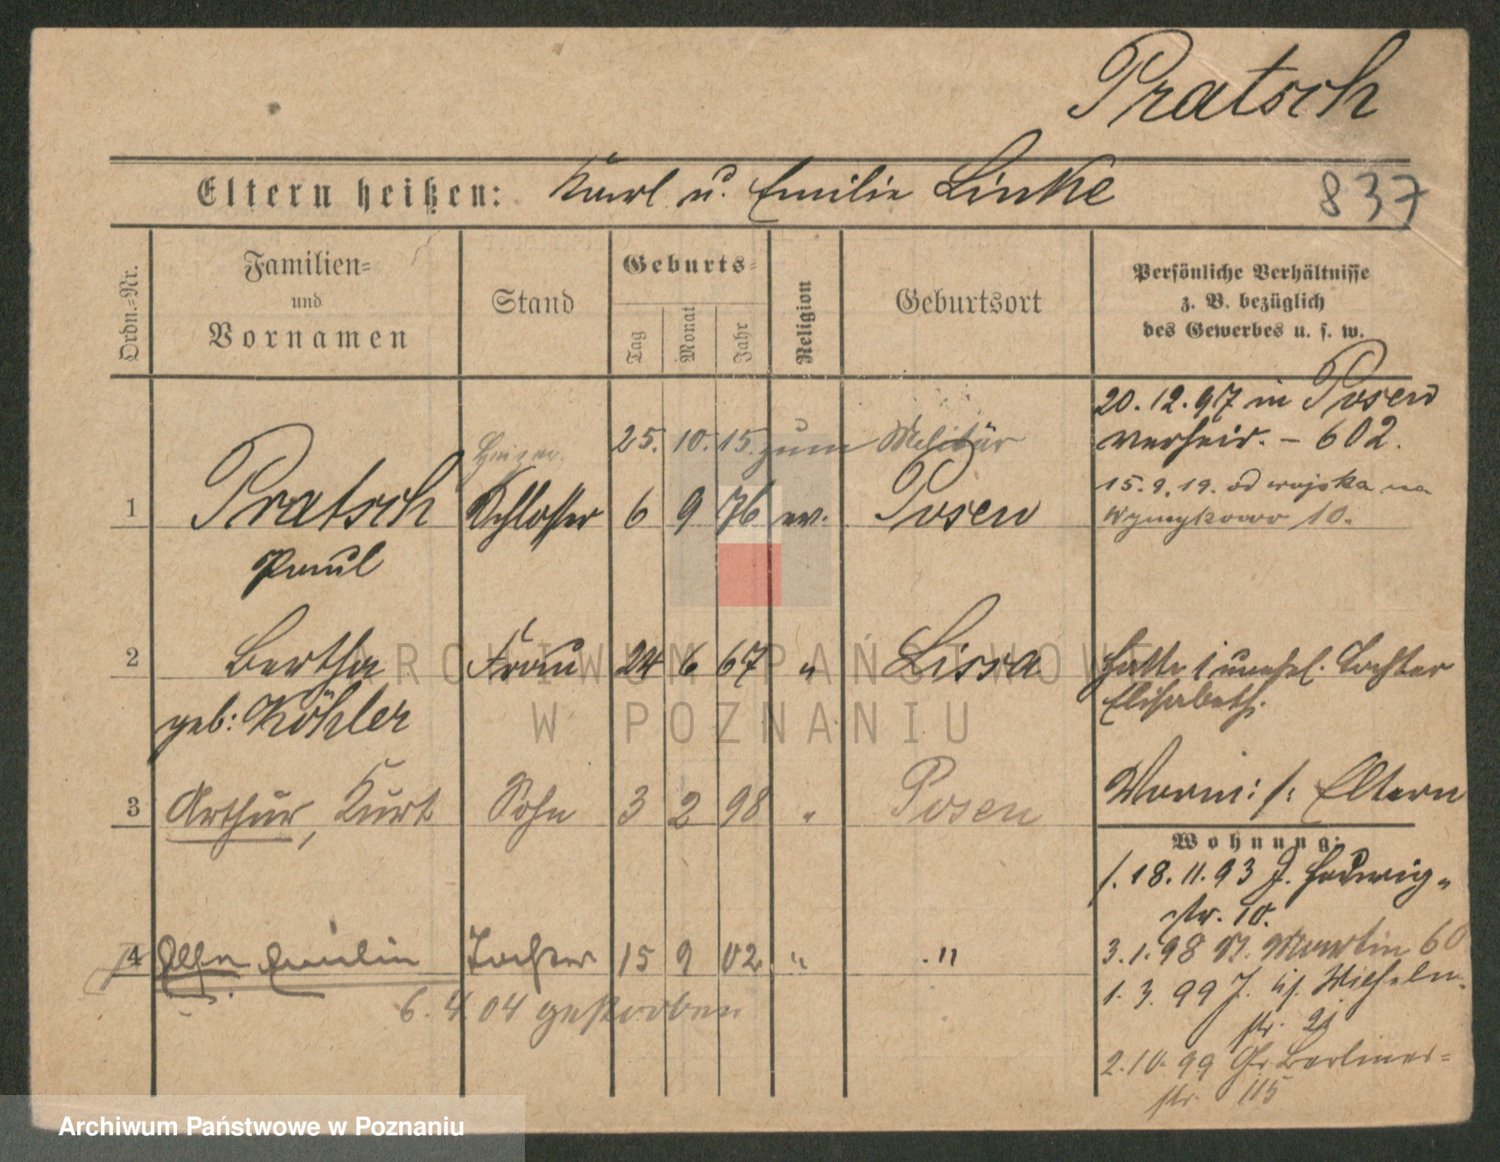 Pratsch
Eltern heißen: Karl u. Emilie Linke
837
Ordn.-Nr.
Familien-
und
Vornamen
Stand
Geburts-
Tag
Monat
Jahr
Religion
Geburtsort
Persönliche Verhältnisse
z. B. bezüglich
des Gewerbes u. s. w.
20.12.97 in Posen
verheir. – 602.
Heizer. 25. 10. 15. zum Militär
15.9.19. od wojska na
1 Pratsch Schlosser 6 9 76 ev. Posen
10.
Paul
2 Bertha Frau 24 6 67 " Lissa
hatte 1 unehel. Tochter
Elisabeth.
geb: Köhler
3 Arthur, Kurt Sohn 3 2 98 " Posen
Vorm: s: Eltern
Wohnung:
1. 18.11.93 J. Hedwig-
str. 10.
4 Else Emilie Tochter 15 9 02 " "
3.1.98 St. Martin 60
6. 4. 04 gestorben
1. 3. 99 J. Wilhelm-
str. 21
2.10.99 Gr Berliner-
str. 115
ARCHIWUM PAŃSTWOWE
W POZNANIU
Archiwum Państwowe w Poznaniu